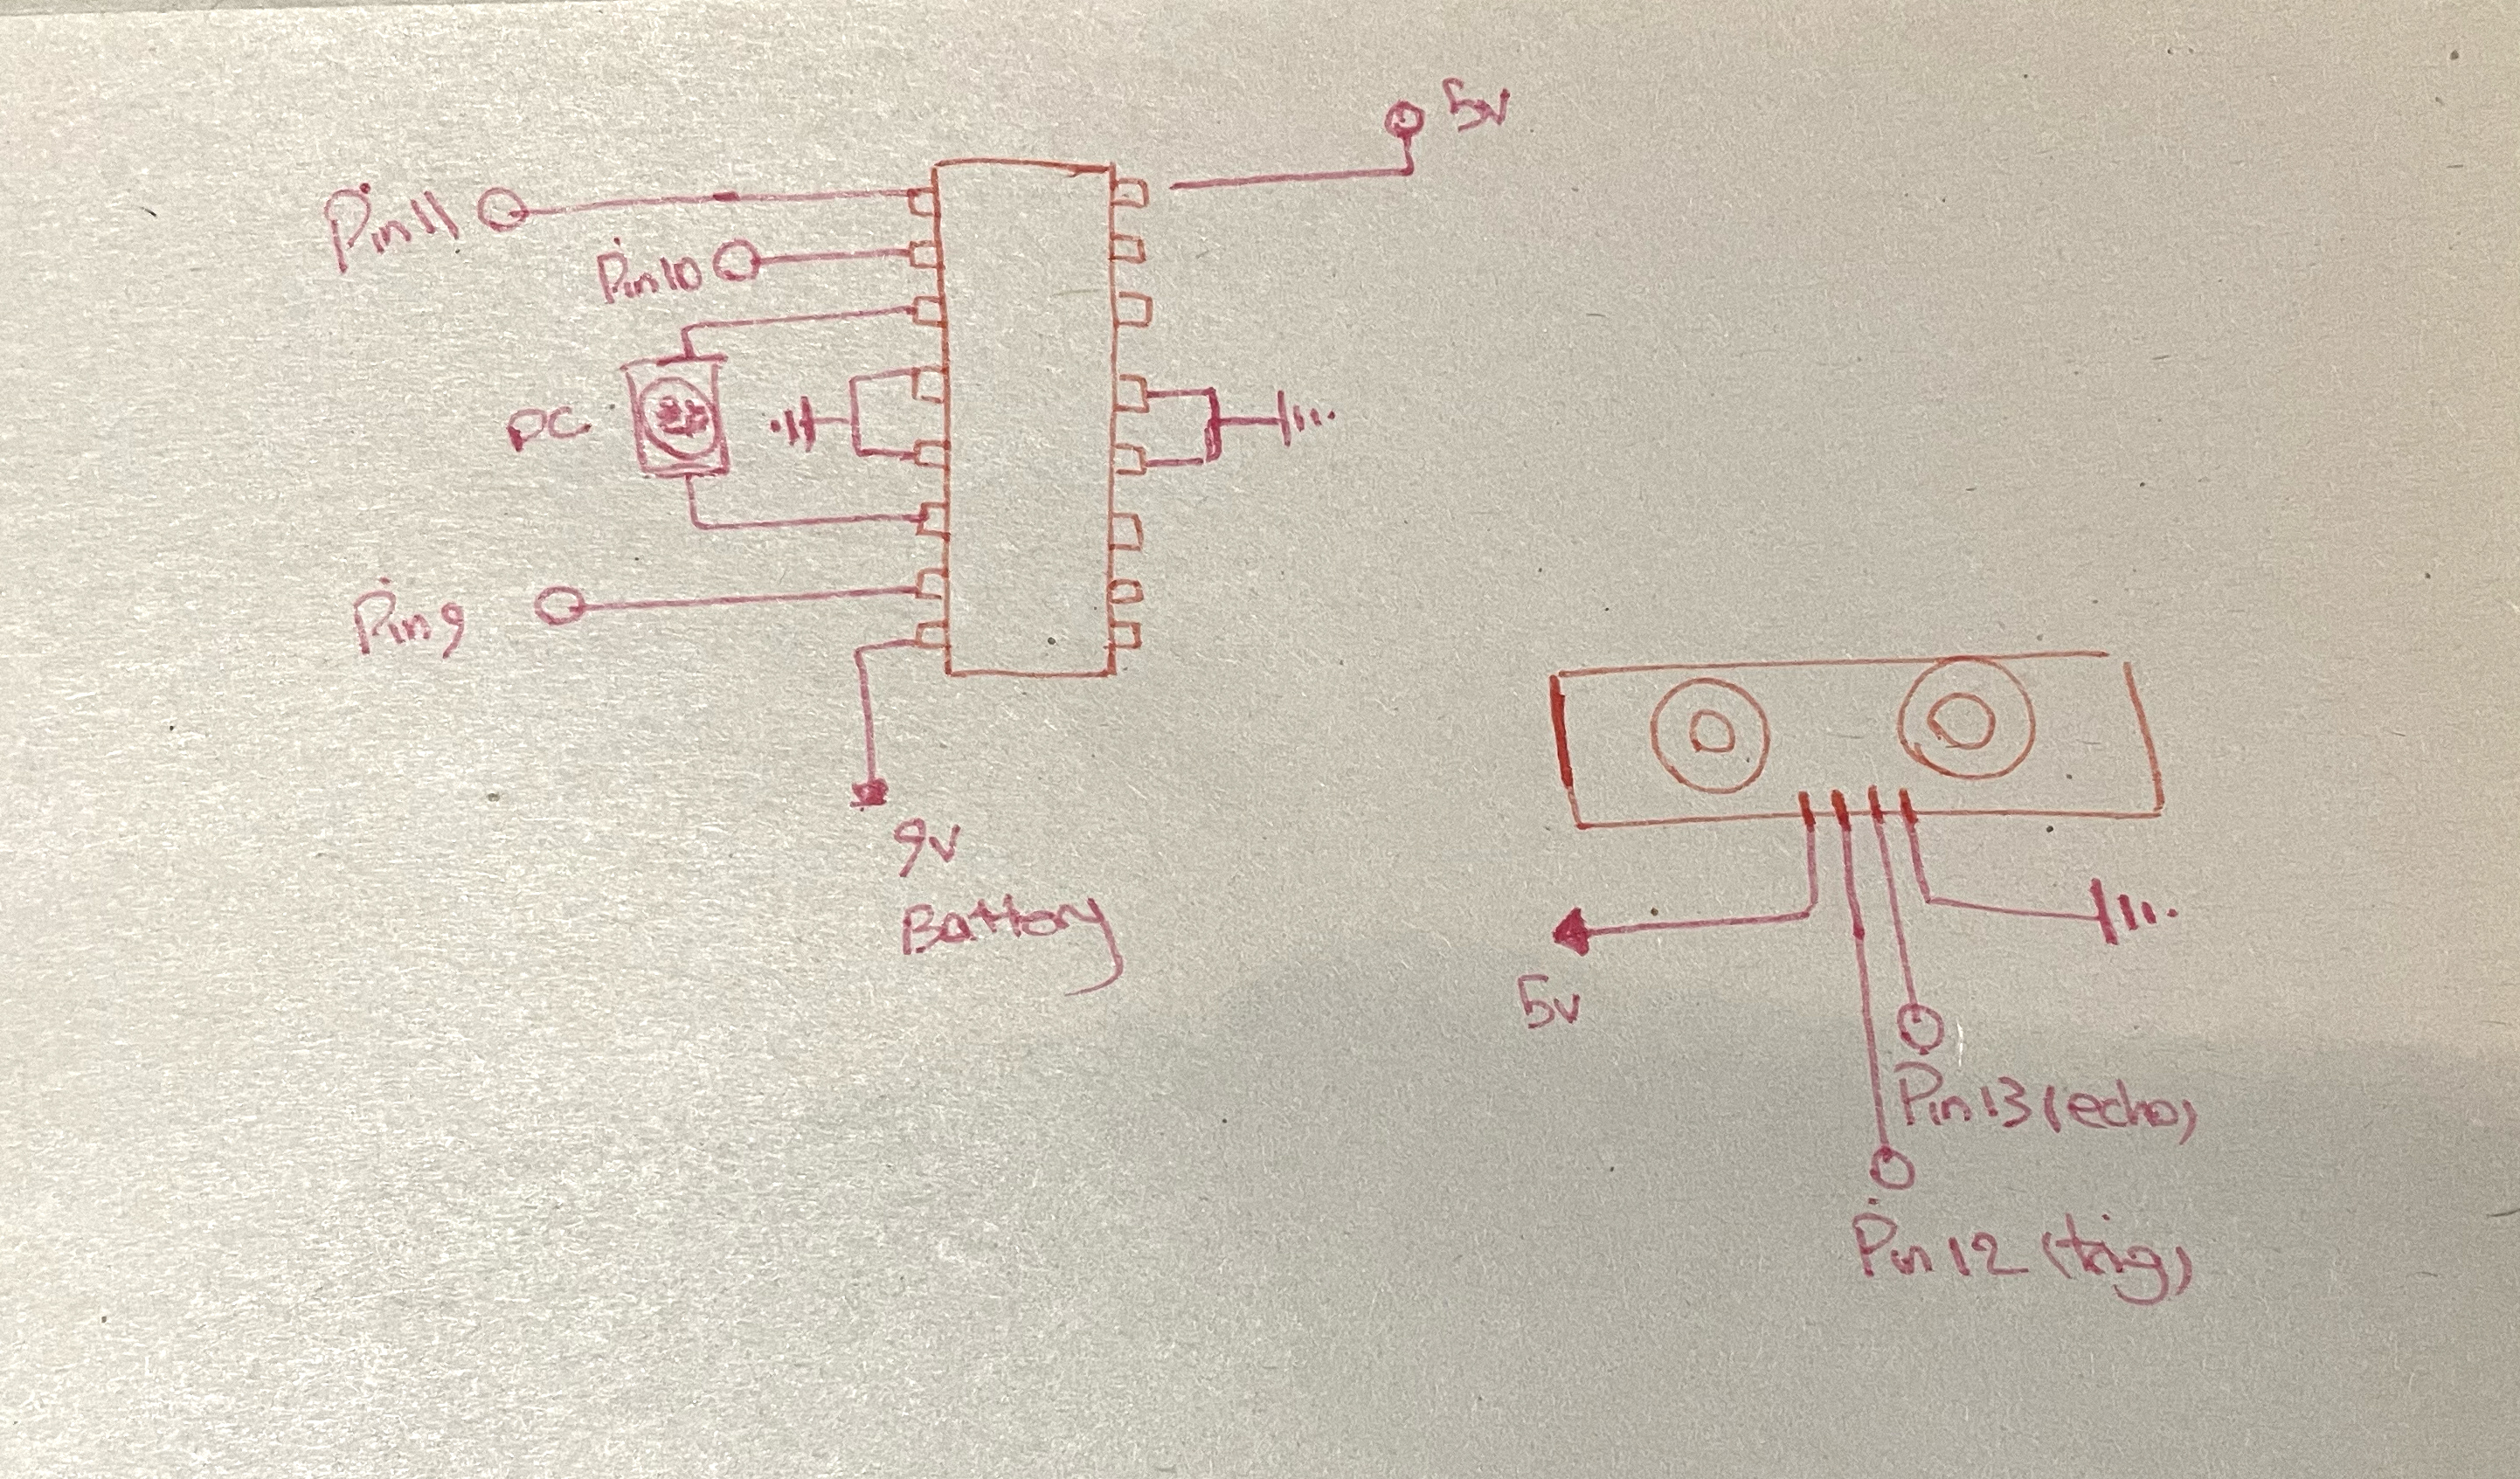 5v
Pin 11
Pin 10
DC
Pin 9
9v
Battory
5v
Pin 13 (echo)
Pin 12 (trig)